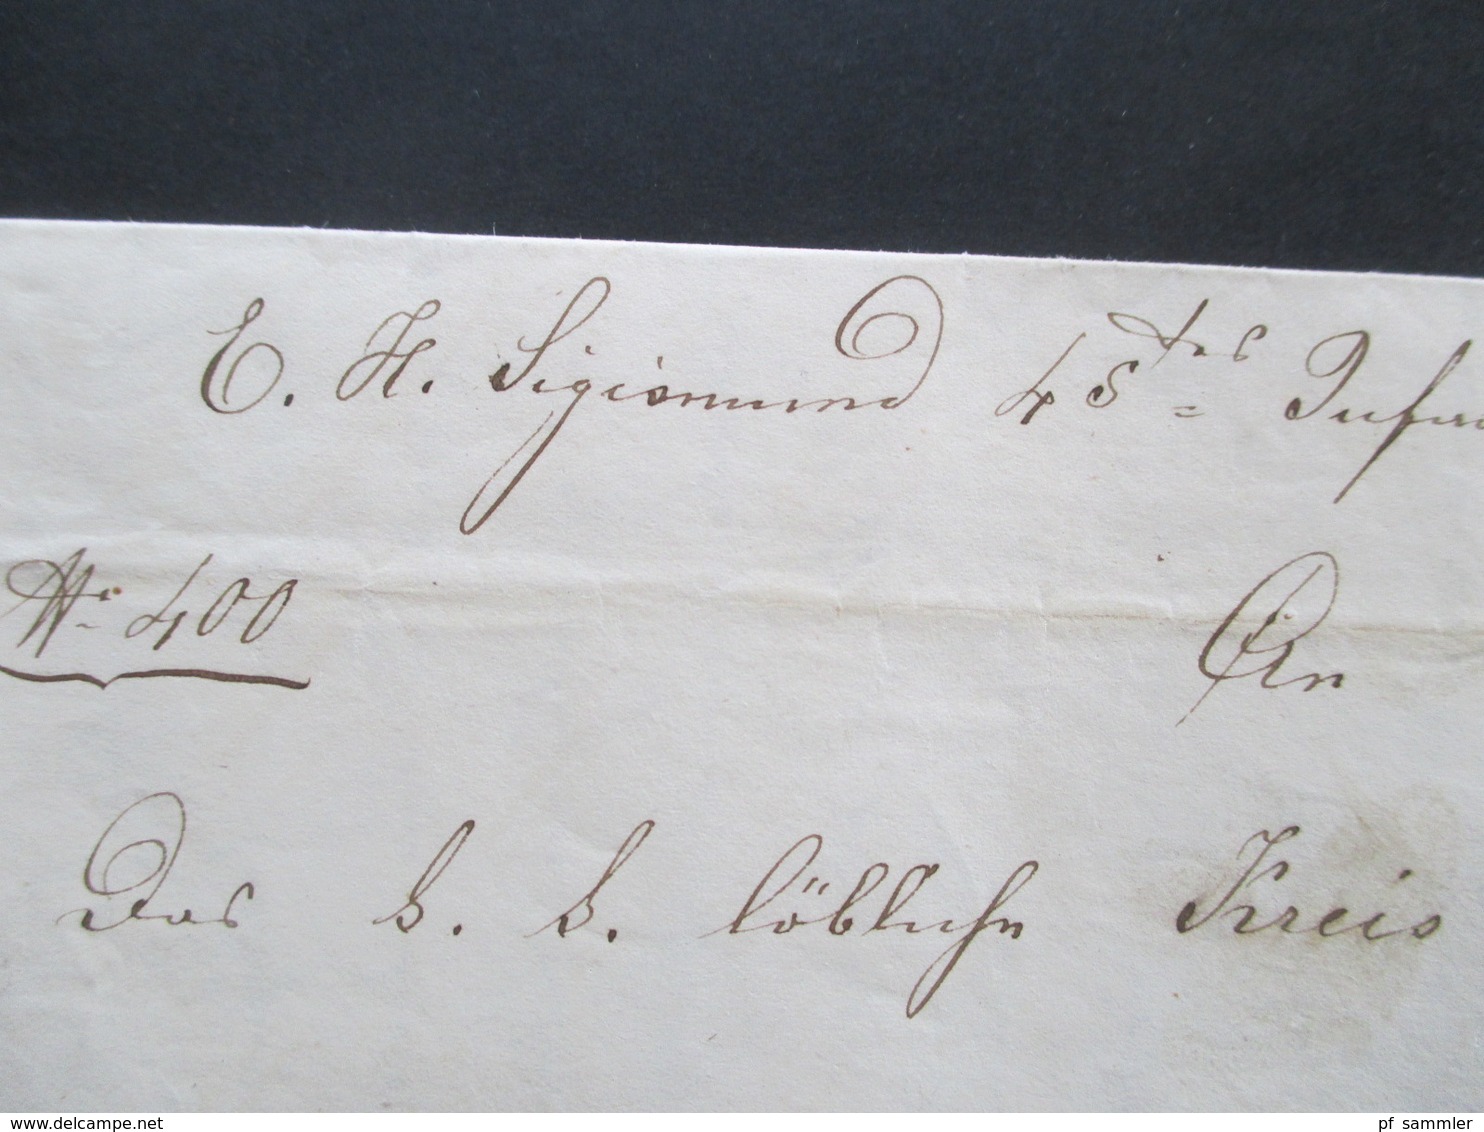 E. H. Sigismund 45tes Infan
No 400
An
Das k. k. löbliche Kreis
www.delcampe.net
pf_sammler